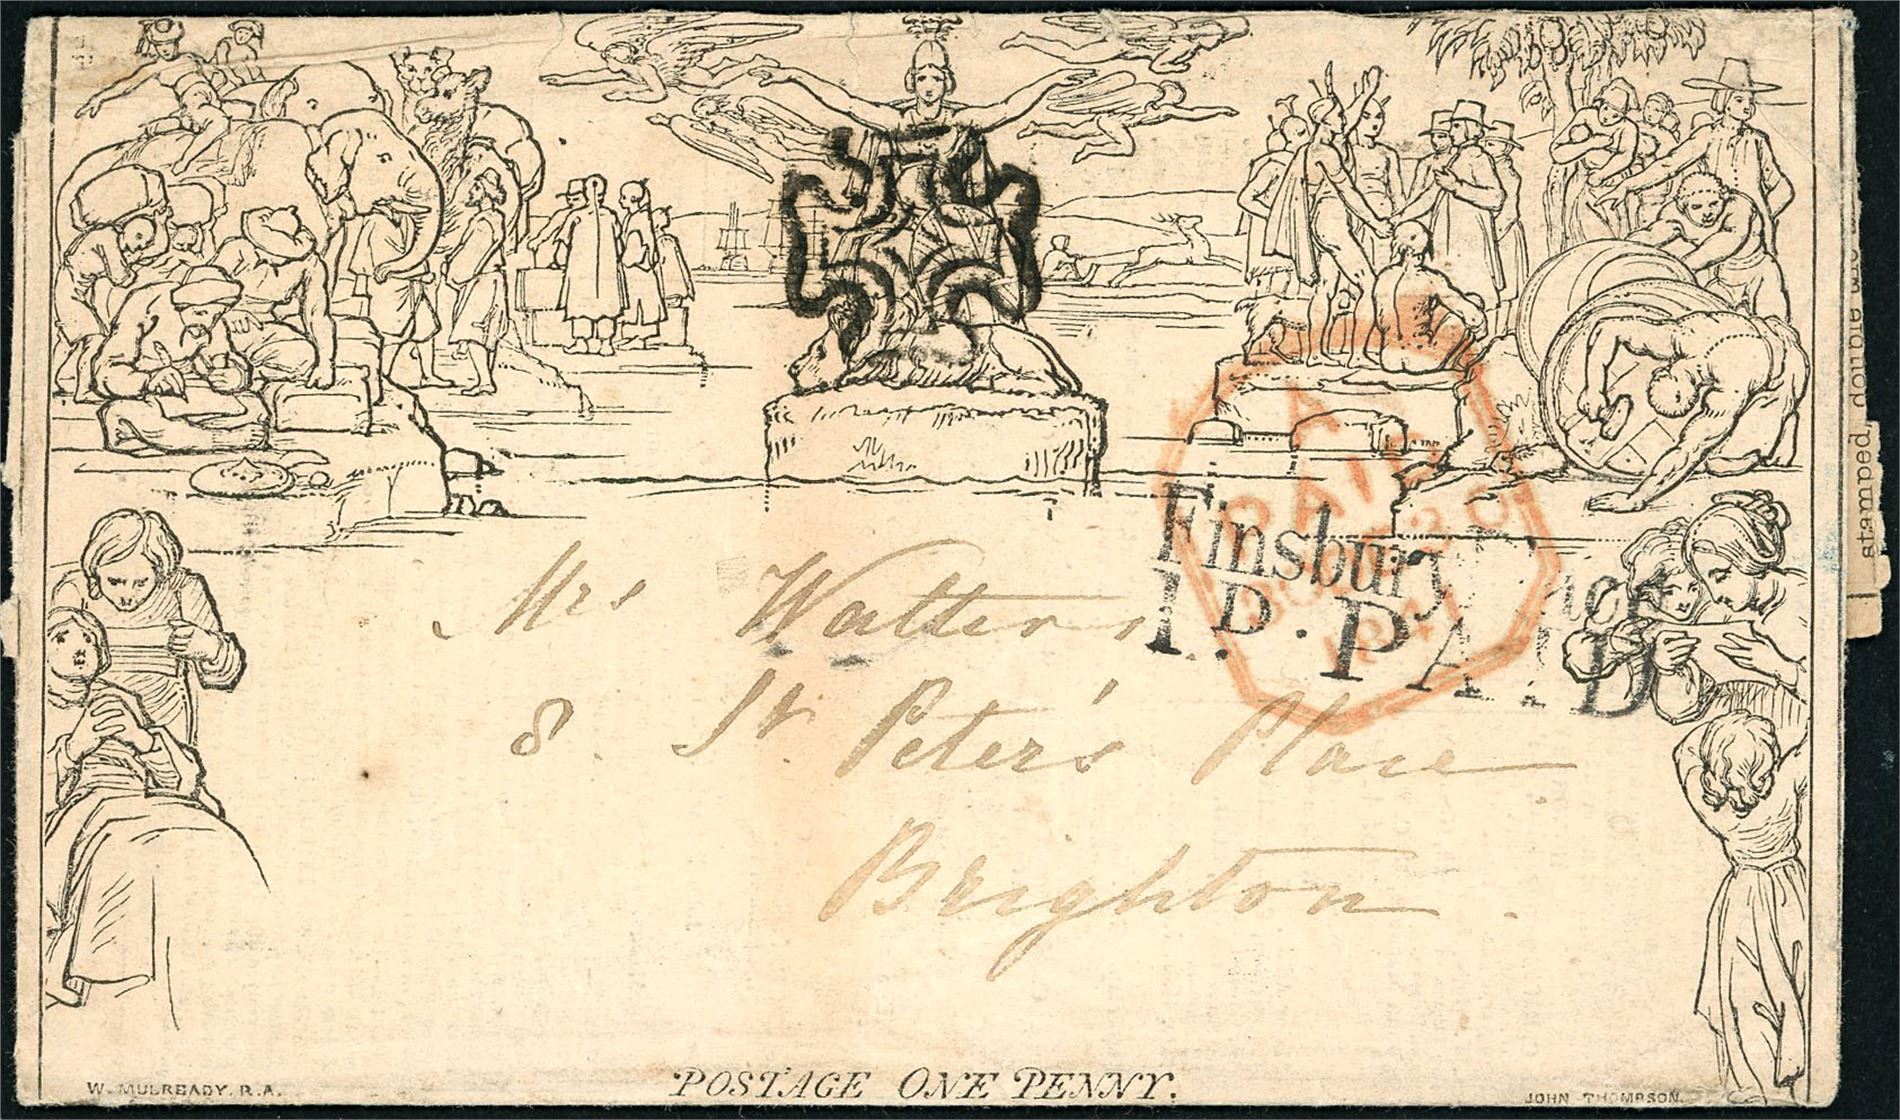 Mrs Walters
8. St. Peter's Place
Brighton.
Finsbury
1.D. PAID
PAID
1841
POSTAGE ONE PENNY.
W. MULREADY. R.A.
JOHN THOMPSON.
stamped, double